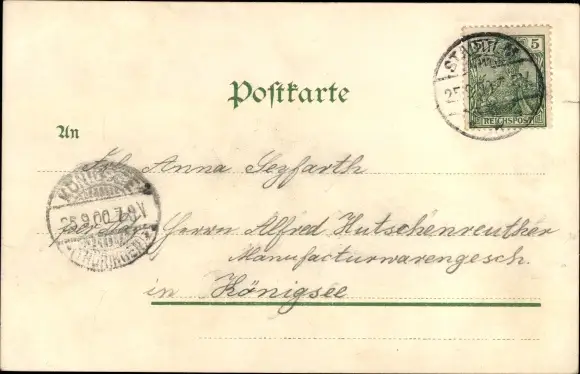 STADTILM
5
25.9.00
REICHSPOST
Postkarte
An
Frl. Anna Seyfarth
Herrn Alfred Hutschenreuther
Manufacturwarengesch.
in Königsee
KÖNIGSEE
25.9.00.7-8V.
(THÜRINGEN)